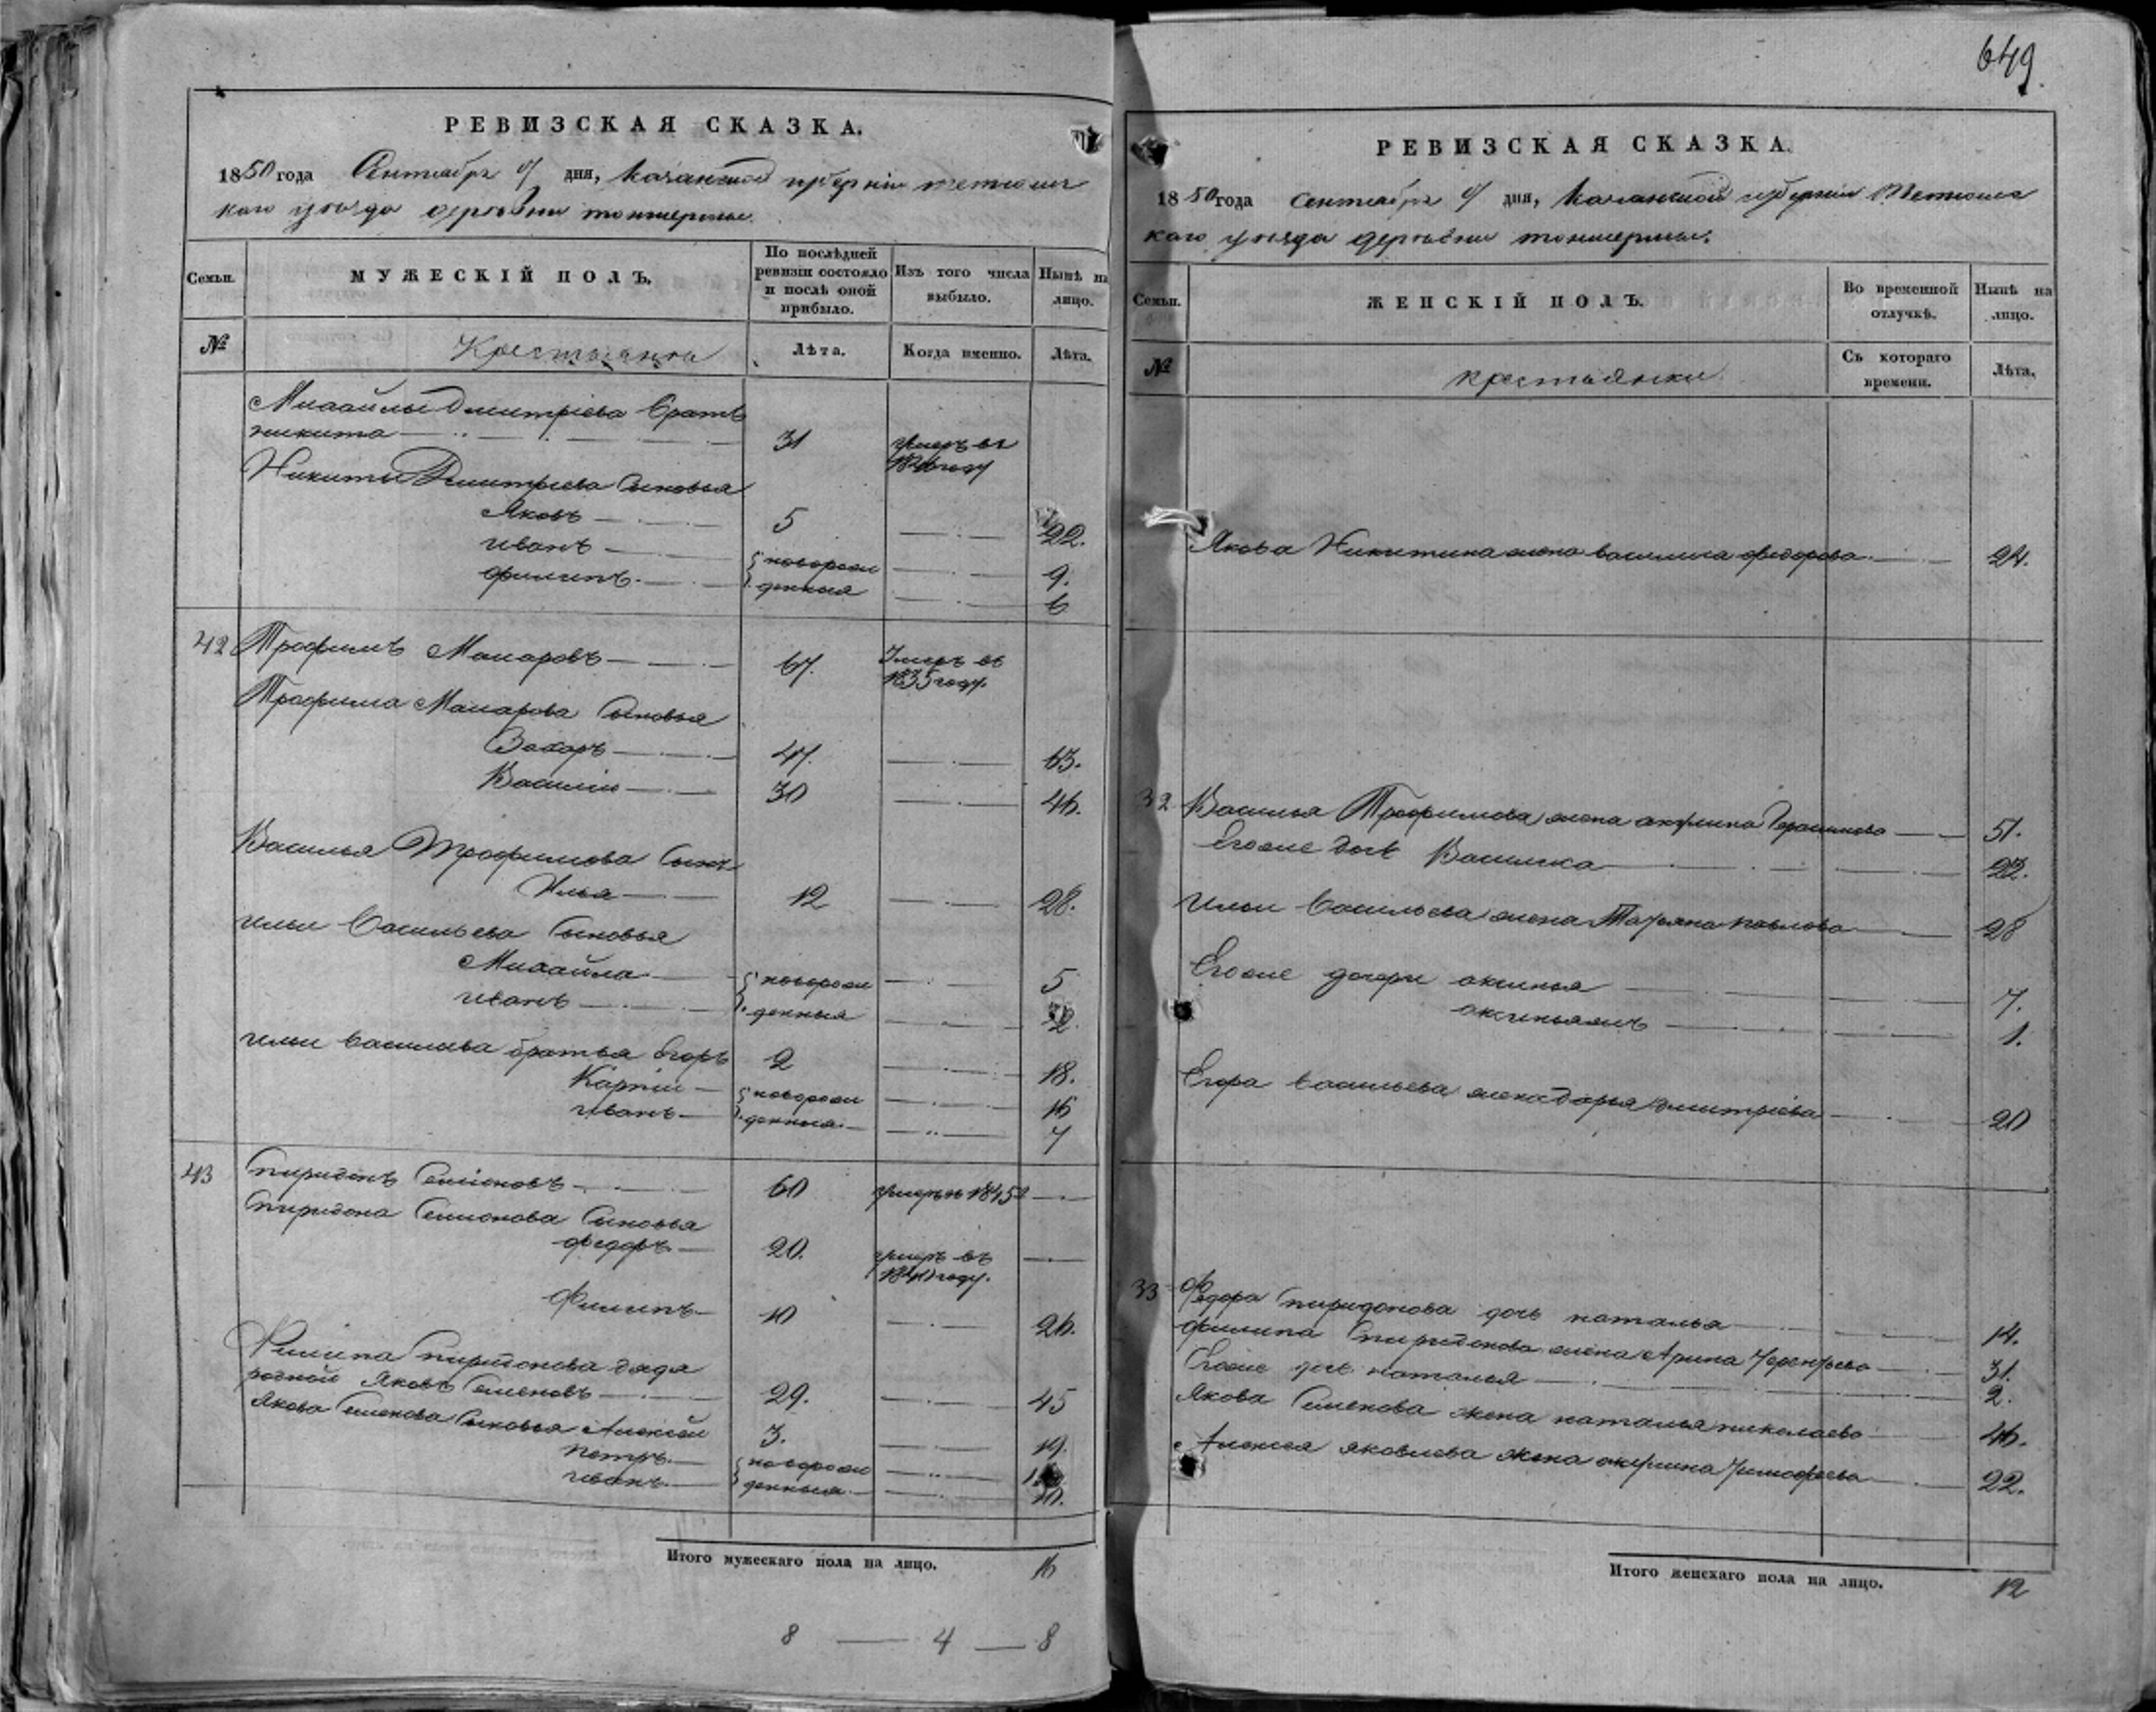 649
РЕВИЗСКАЯ СКАЗКА.
1850 года Сентября дня, Казанской губерніи тетюшс
каго уѣзда деревни
Семьи.
МУЖЕСКІЙ ПОЛЪ.
По послѣдней ревизіи состояло и послѣ оной прибыло.
Изъ того числа выбыло.
Нынѣ на лицо.
№
Крестьяня
Лѣта.
Когда именно.
Лѣта.
Михайлы Дмитріева братъ
никита 31 умеръ въ
году
Никиты Дмитріева сыновья
Яковъ 5 22.
иванъ новорож 9.
филипъ денныя 6
42 Трофимъ Макаровъ 67. Умеръ въ
1835 году.
Трофима Макарова сыновья
Захаръ 47. 63.
Василій 30 46.
Василья Трофимова сынъ
Илья 12 28.
ильи Васильева сыновья
Михайла новорож 5
иванъ денныя 2
ильи василева братья егоръ 2 18.
Карпій новорож 16
иванъ денныя 7
43 спиридонъ Семіоновъ 60 умеръ в 1845
Спиридона Семионова сыновья
федоръ 20. умеръ въ
году.
Филипъ 10 26.
Филипа спиридонова дядя
родной Яковъ Семеновъ 29. 45
Якова Семенова сыновья Алексей 3. 19.
петръ новорож
иванъ денныя 10.
Итого мужескаго пола на лицо. 16
8 — 4 — 8
РЕВИЗСКАЯ СКАЗКА.
1850 года сентября дня, Казанской губерніи Тетюшс
каго уѣзда деревни
Семьи.
ЖЕНСКІЙ ПОЛЪ.
Во временной отлучкѣ.
Нынѣ на лицо.
№
крестьянки
Съ котораго времени.
Лѣта.
Якова Никитина жена василиса федорова 24.
32 Василья Трофимова жена акулина Герасимова 51.
Егоже дочь Василиса 22.
ильи Васильева жена Татьяна павлова 28
Егоже дочери аксинья 7.
1.
Егора васильева жена дарья дмитріева 20
33 Федора спиридонова дочь наталья 14.
филипа Спиридонова жена Арина Терентьева 31.
Егоже дочь наталья 2.
Якова Семенова жена наталья николаева 46.
Алексея яковлева жена акулина тимофеева 22.
Итого женскаго пола на лицо. 12